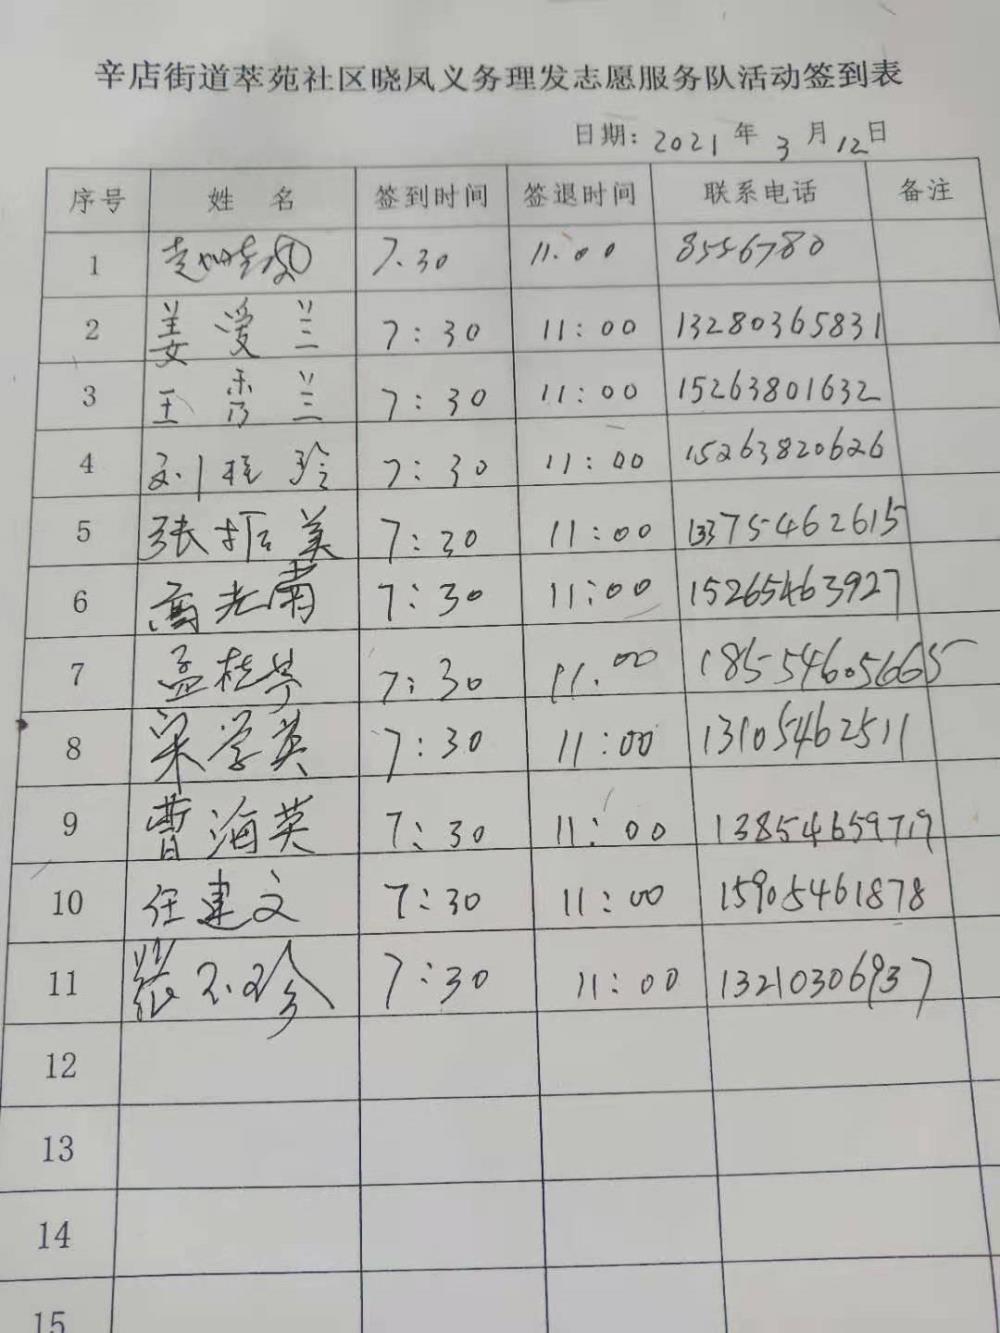 辛店街道萃苑社区晓凤义务理发志愿服务队活动签到表
日期: 2021 年 3 月 12 日
序号 姓 名 签到时间 签退时间 联系电话 备注
1 赵晓凤 7.30 11.00 8556780
2 姜爱兰 7:30 11:00 13280365831
3 王秀兰 7:30 11:00 15263801632
4 刘桂玲 7:30 11:00 15263820626
5 张振美 7:30 11:00 13375462615
6 高光南 7:30 11:00 15265463927
7 孟桂芳 7:30 11.00 18554605665
8 宋学英 7:30 11:00 13105462511
9 曹海英 7:30 11:00 13854659719
10 任建文 7:30 11:00 15905461878
11 张 珍 7:30 11:00 13210306937
12
13
14
15